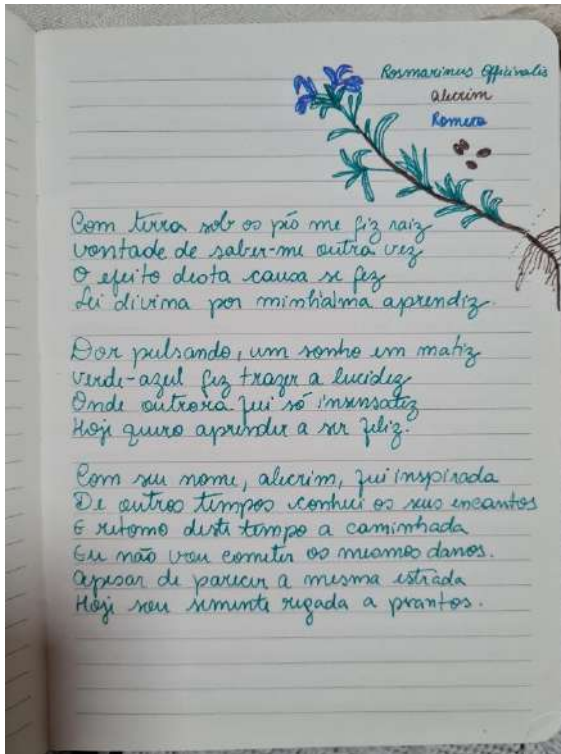 Rosmarinus Officinalis
alecrim
Romero
Com terra sob os pés me fiz raiz
vontade de saber-me outra vez
O efeito desta causa se fez
Lei divina por minh'alma aprendiz.
Dor pulsando, um sonho em matiz
verde-azul fez trazer a lucidez
Onde outrora fui só insensatez
Hoje quero aprender a ser feliz.
Com seu nome, alecrim, fui inspirada
De outros tempos conheci os seus encantos
E retomo deste tempo a caminhada
Eu não vou cometer os mesmos danos.
Apesar de parecer a mesma estrada
Hoje sou semente regada a prantos.